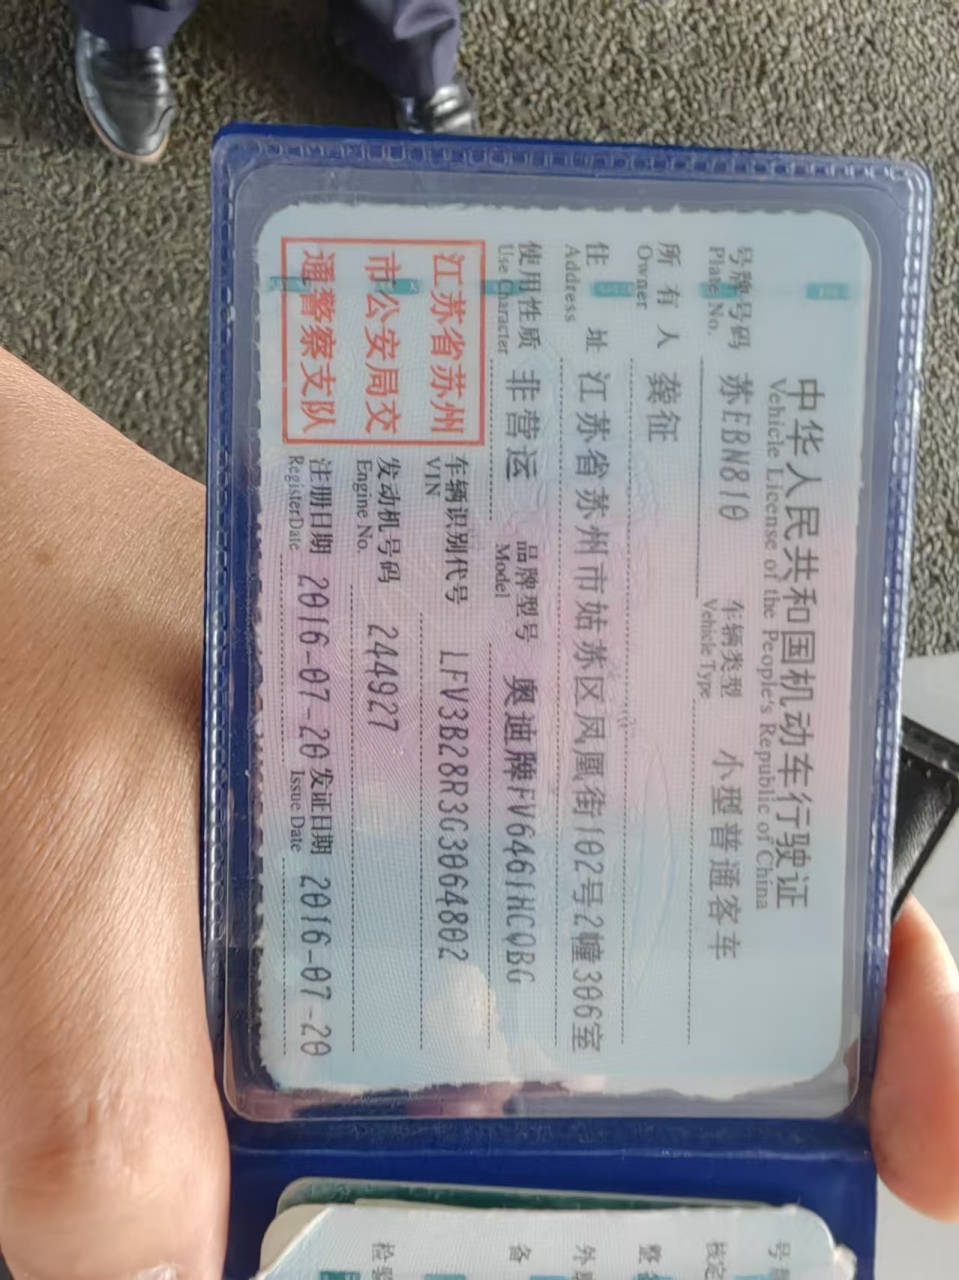 中华人民共和国机动车行驶证
Vehicle License of the People's Republic of China
号牌号码 苏EBN810 车辆类型 小型普通客车
Plate No. Vehicle Type
所有人 龚征
Owner
住址 江苏省苏州市姑苏区凤凰街102号2幢306室
Address
使用性质 非营运 品牌型号 奥迪牌FV6461HCQBG
Use Character Model
江苏省苏州
市公安局交
通警察支队
车辆识别代号 LFV3B28R3G3064802
VIN
发动机号码 244927
Engine No.
注册日期 2016-07-20 发证日期 2016-07-20
Register Date Issue Date